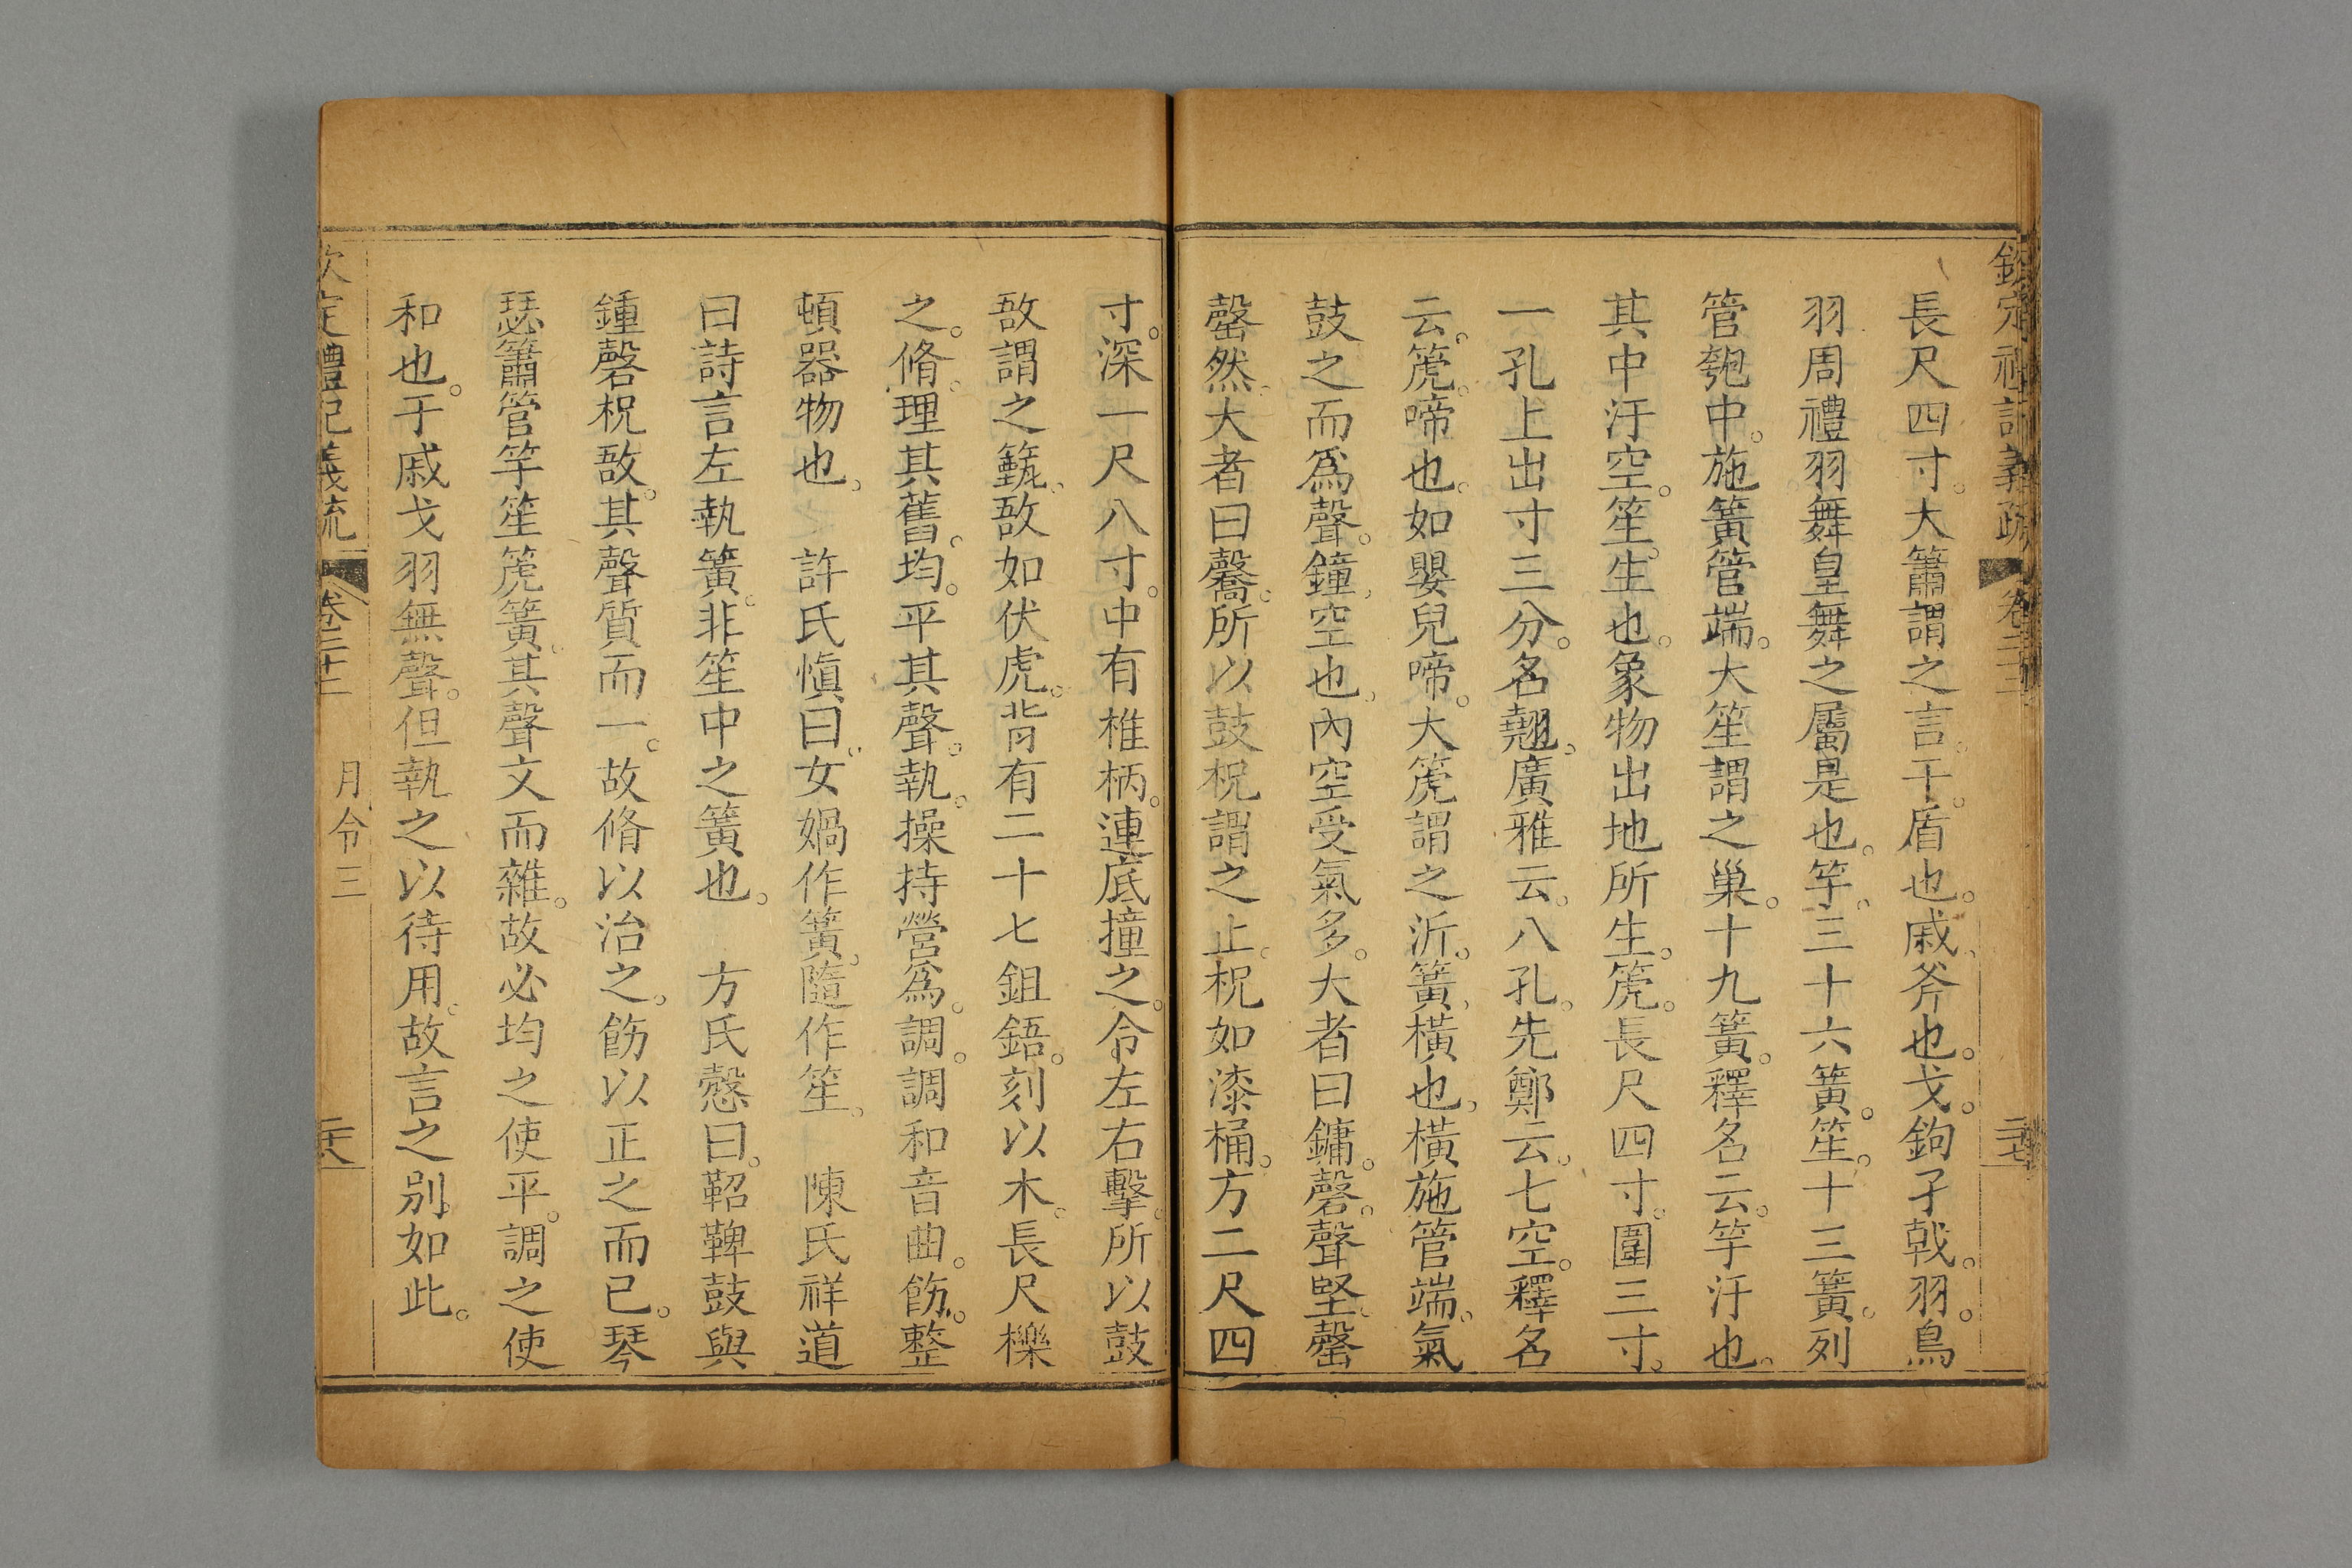 欽定禮記義疏 卷二十二 二十七
長尺四寸。大簫謂之言。干。盾也。戚、斧也。戈。鉤孑戟。羽。鳥
羽周禮羽舞皇舞之屬是也。竽。三十六簧。笙。十三簧。列
管匏中。施簧管端。大笙謂之巢。十九簧。釋名云。竽汙也。
其中汙空。笙。生也。象物出地所生。箎。長尺四寸。圍三寸。
一孔上出寸三分。名翹。廣雅云。八孔。先鄭云。七空。釋名
云。箎。啼也。如嬰兒啼。大箎謂之沂。簧、橫也、橫施管端。氣
鼓之而爲聲。鐘、空也、內空受氣多。大者曰鏞。磬。聲堅、罄
罄然。大者曰毊。所以鼓柷謂之止。柷如漆桶。方二尺四
寸。深一尺八寸。中有椎柄。連底撞之。令左右擊。所以鼓
敔謂之籈。敔如伏虎。背有二十七鉏鋙。刻以木。長尺櫟
之。脩。理其舊。均。平其聲。執。操持營爲。調。調和音曲。飭。整
頓器物也。 許氏愼曰。女媧作簧。隨作笙。 陳氏祥道
曰詩言左執簧。非笙中之簧也。 方氏慤曰。鞀鞞鼓與
鍾磬柷敔。其聲質而一。故脩以治之。飭以正之而已。琴
瑟簫管竽笙箎簧。其聲文而雜。故必均之使平。調之使
和也。干戚戈羽無聲。但執之以待用。故言之別如此。
欽定禮記義疏 卷二十二 月令三 二十八